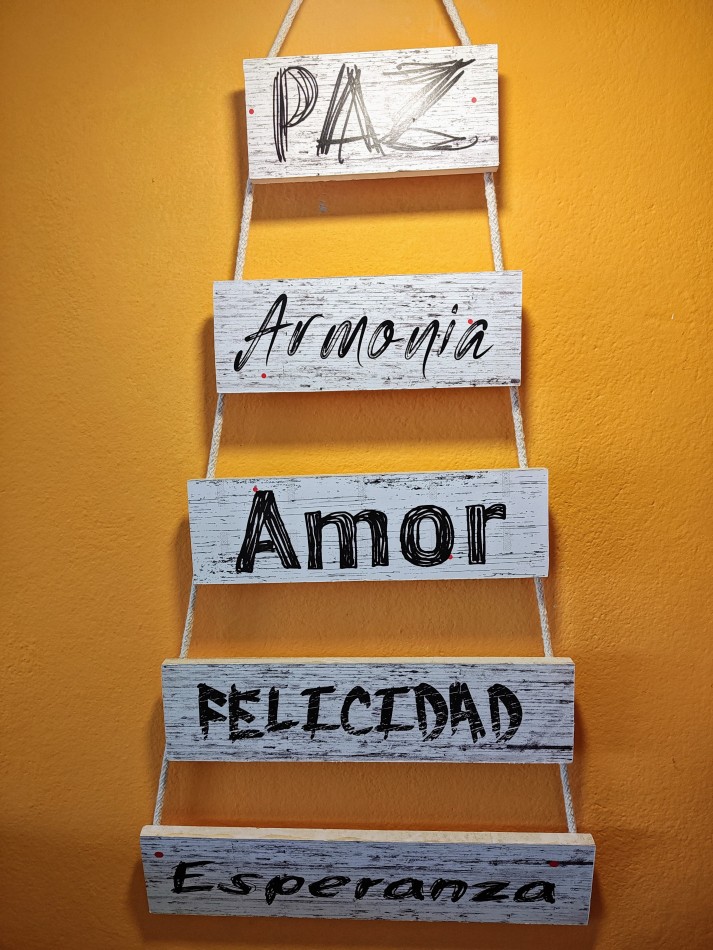 PAZ
Armonia
Amor
FELICIDAD
Esperanza